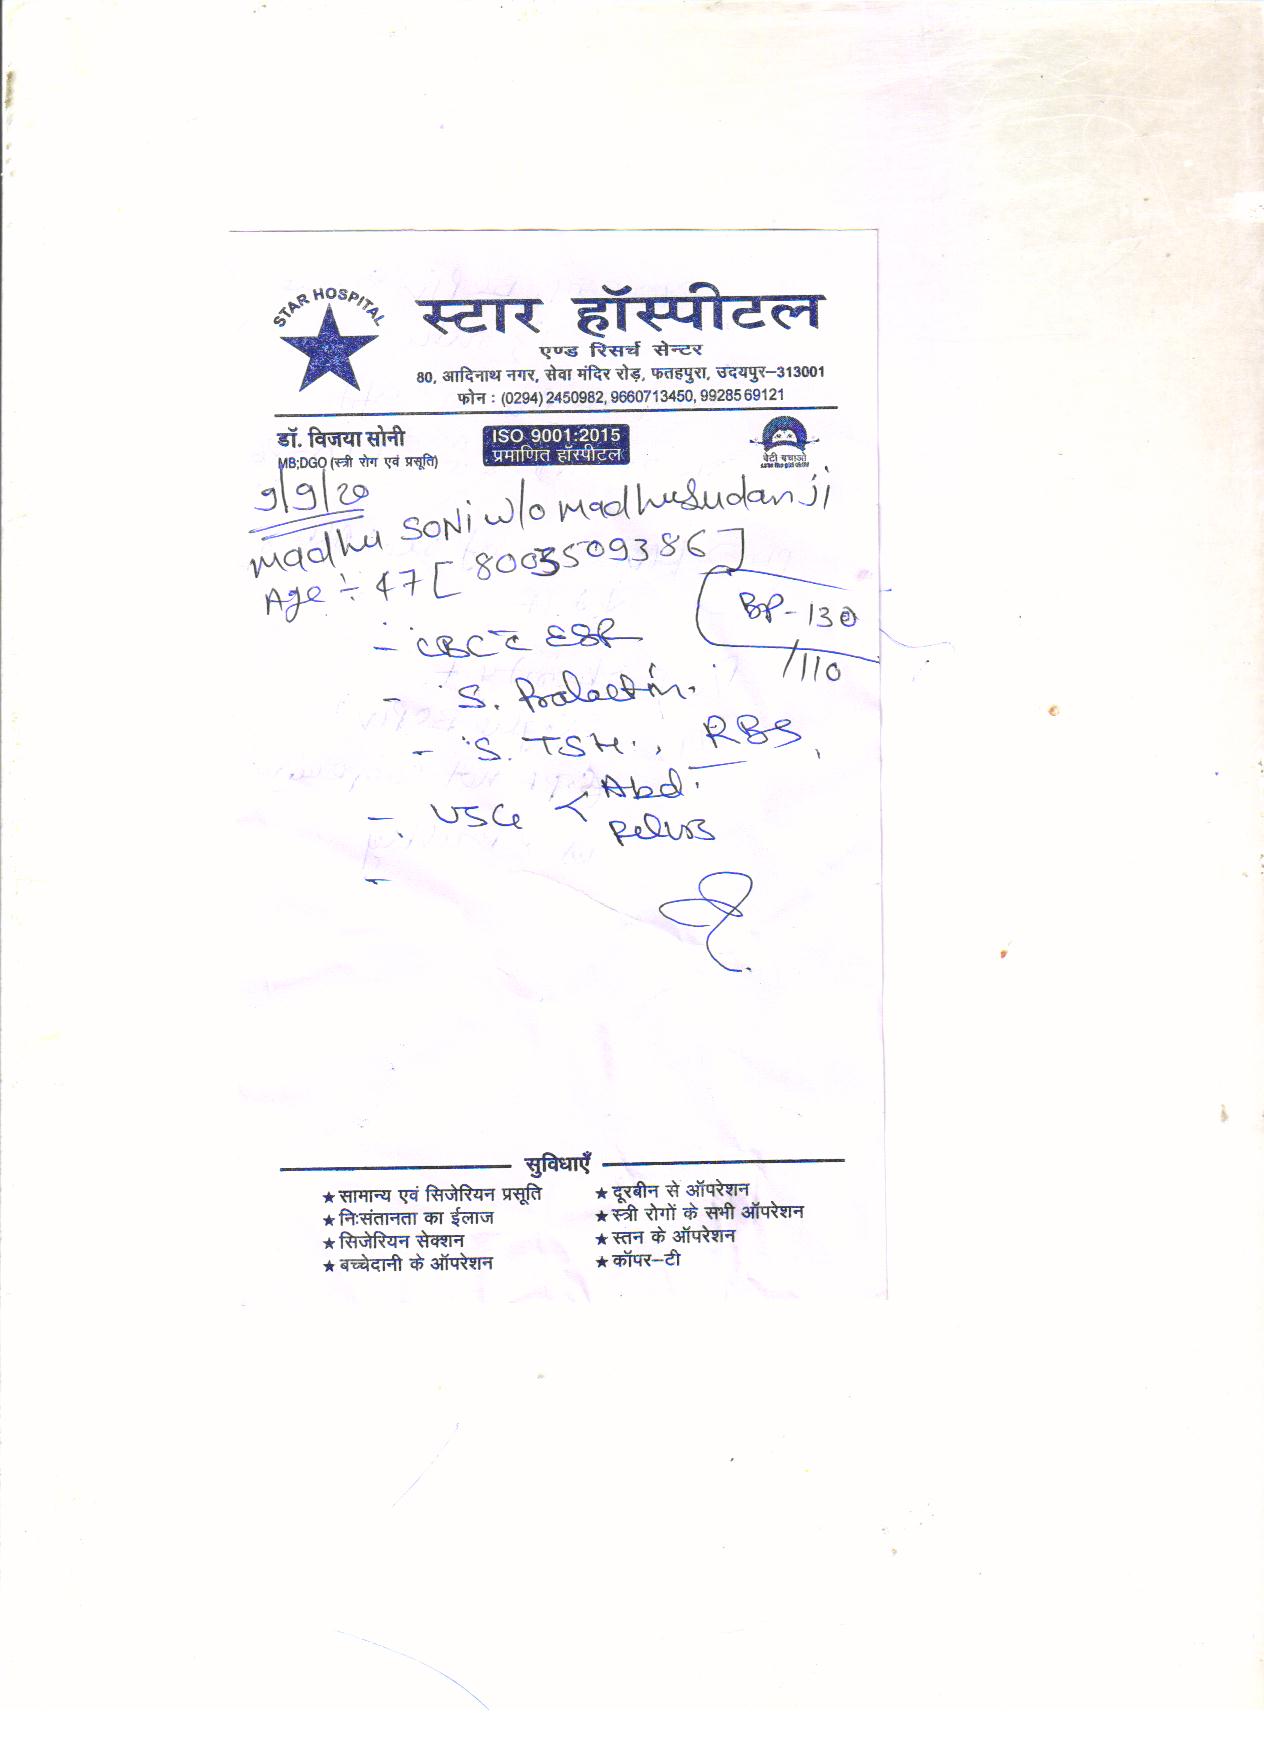 STAR HOSPITAL
स्टार हॉस्पीटल
एण्ड रिसर्च सेन्टर
80, आदिनाथ नगर, सेवा मंदिर रोड़, फतहपुरा, उदयपुर–313001
फोन : (0294) 2450982, 9660713450, 9928569121
डॉ. विजया सोनी
MB;DGO (स्त्री रोग एवं प्रसूति)
ISO 9001:2015
प्रमाणित हॉस्पीटल
बेटी बचाओ
9/9/20
Madhu SONi W/o Madhusudan ji
Age :- 47 [8003509386]
BP - 130
/110
- CBC c̄ ESR
- S. Prolactin.
- S. TSH., RBS,
- USG < Abd.
Pelvis
-
सुविधाएँ
★ सामान्य एवं सिजेरियन प्रसूति
★ निःसंतानता का ईलाज
★ सिजेरियन सेक्शन
★ बच्चेदानी के ऑपरेशन
★ दूरबीन से ऑपरेशन
★ स्त्री रोगों के सभी ऑपरेशन
★ स्तन के ऑपरेशन
★ कॉपर–टी